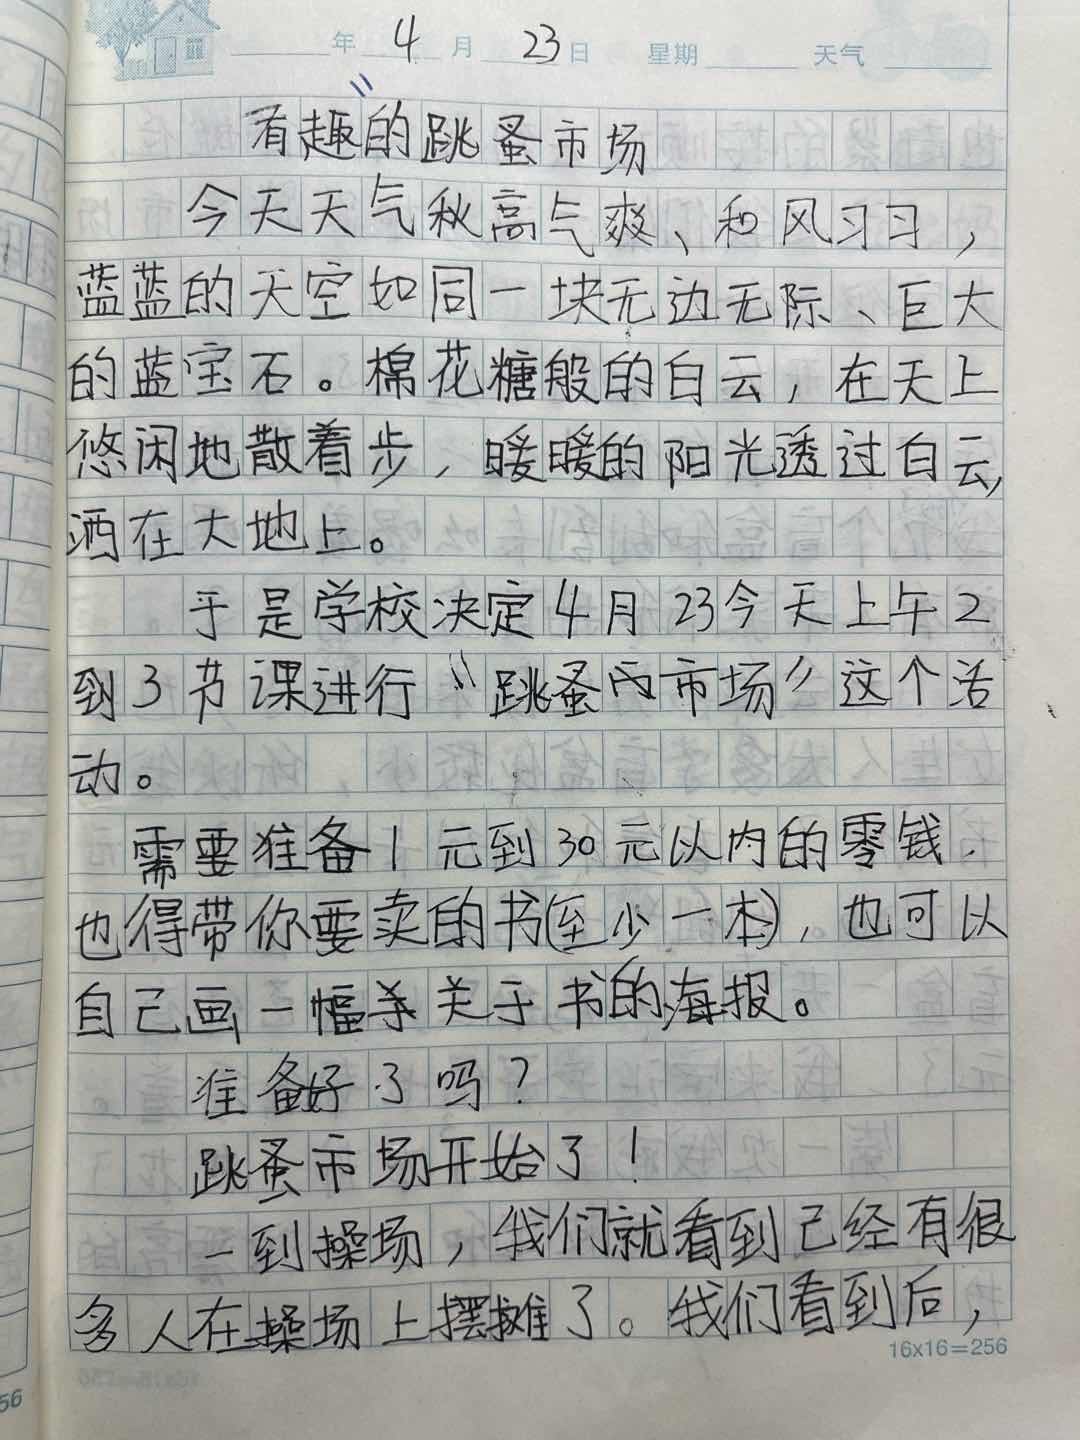 年 4 月 23 日 星期 天气
有趣的跳蚤市场
今天天气秋高气爽、和风习习，
蓝蓝的天空如同一块无边无际、巨大
的蓝宝石。棉花糖般的白云，在天上
悠闲地散着步，暖暖的阳光透过白云，
洒在大地上。
于是学校决定4月23今天上午2
到3节课进行“跳蚤市场”这个活
动。
需要准备1元到30元以内的零钱．
也得带你要卖的书(至少一本)，也可以
自己画一幅关于书的海报。
准备好了吗？
跳蚤市场开始了！
一到操场，我们就看到已经有很
多人在操场上摆摊了。我们看到后，
16x16=256
56